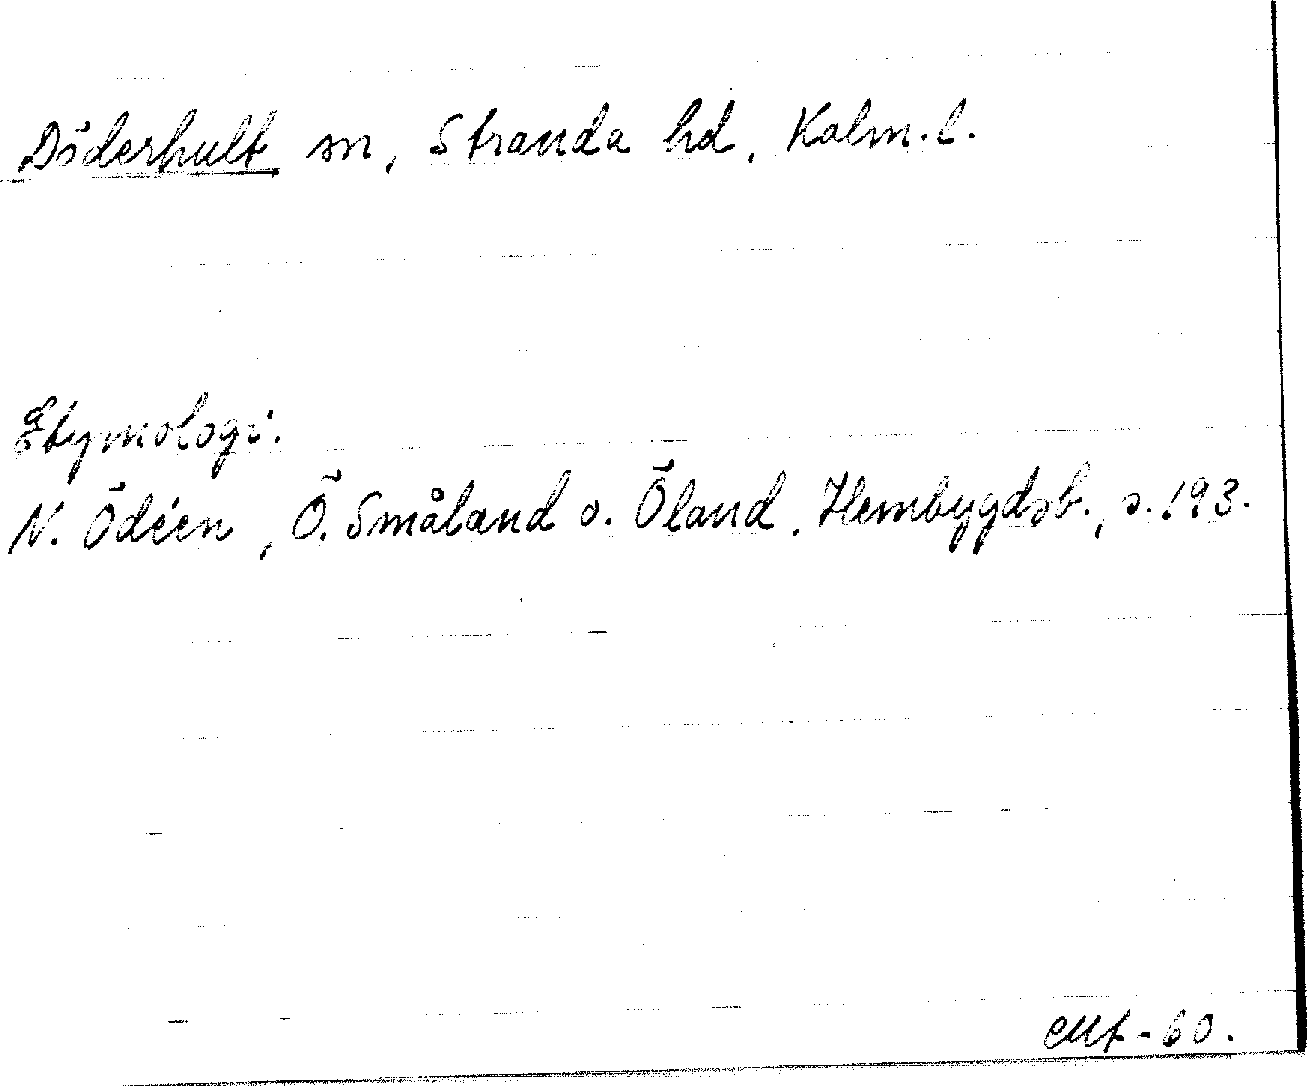 Döderhult sn, Stranda hd, Kalm. l.
Etymologi.
N. Ödéen, Ö. Småland o. Öland. Hembygdsb., s. 193.
-60.